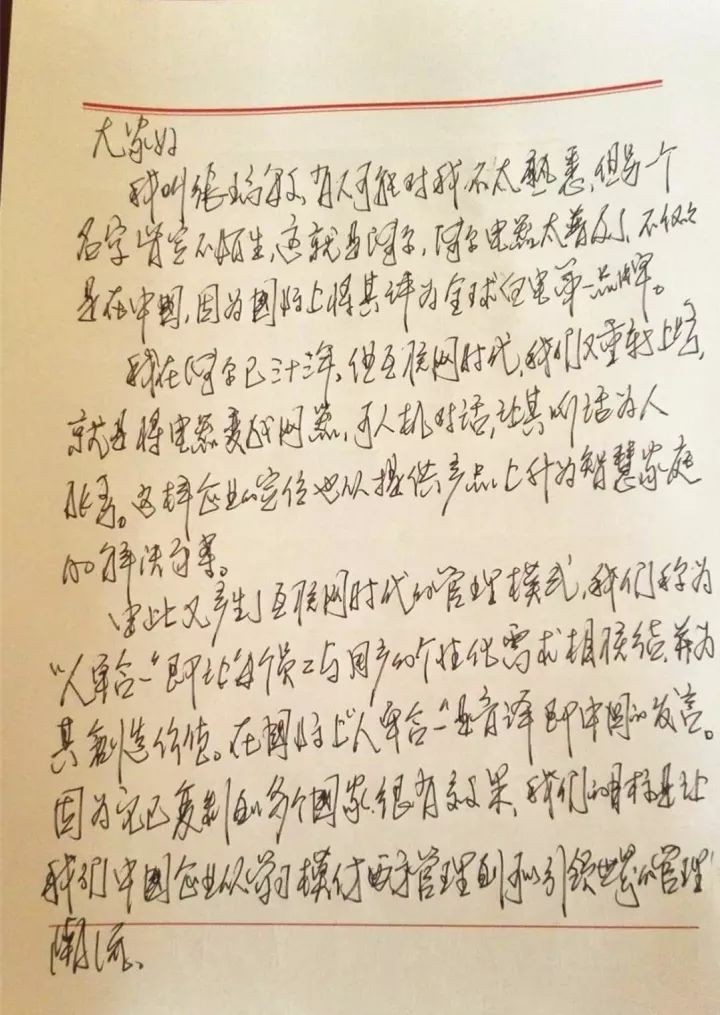 大家好
我叫张瑞敏,有人可能对我不太熟悉,但另一个
名字肯定不陌生,这就是海尔,海尔电器太普及了,不仅仅
是在中国,因为国际上将其评为全球白电第一品牌。
我在海尔已三十三年,但互联网时代,我们又重新上路,
就是将电器变成网器,可人机对话,让其听话为人
服务。这样企业的定位也从提供产品上升为智慧家庭
的解决方案。
由此又产生了互联网时代的管理模式,我们称为
“人单合一”即让每个员工与用户的个性化需求相联结,并为
其创造价值。在国际上“人单合一”是音译即中国的发言。
因为它已复制到多个国家,很有效果,我们的目标是让
我们中国企业从学习模仿西方管理到可以引领世界的管理
潮流、